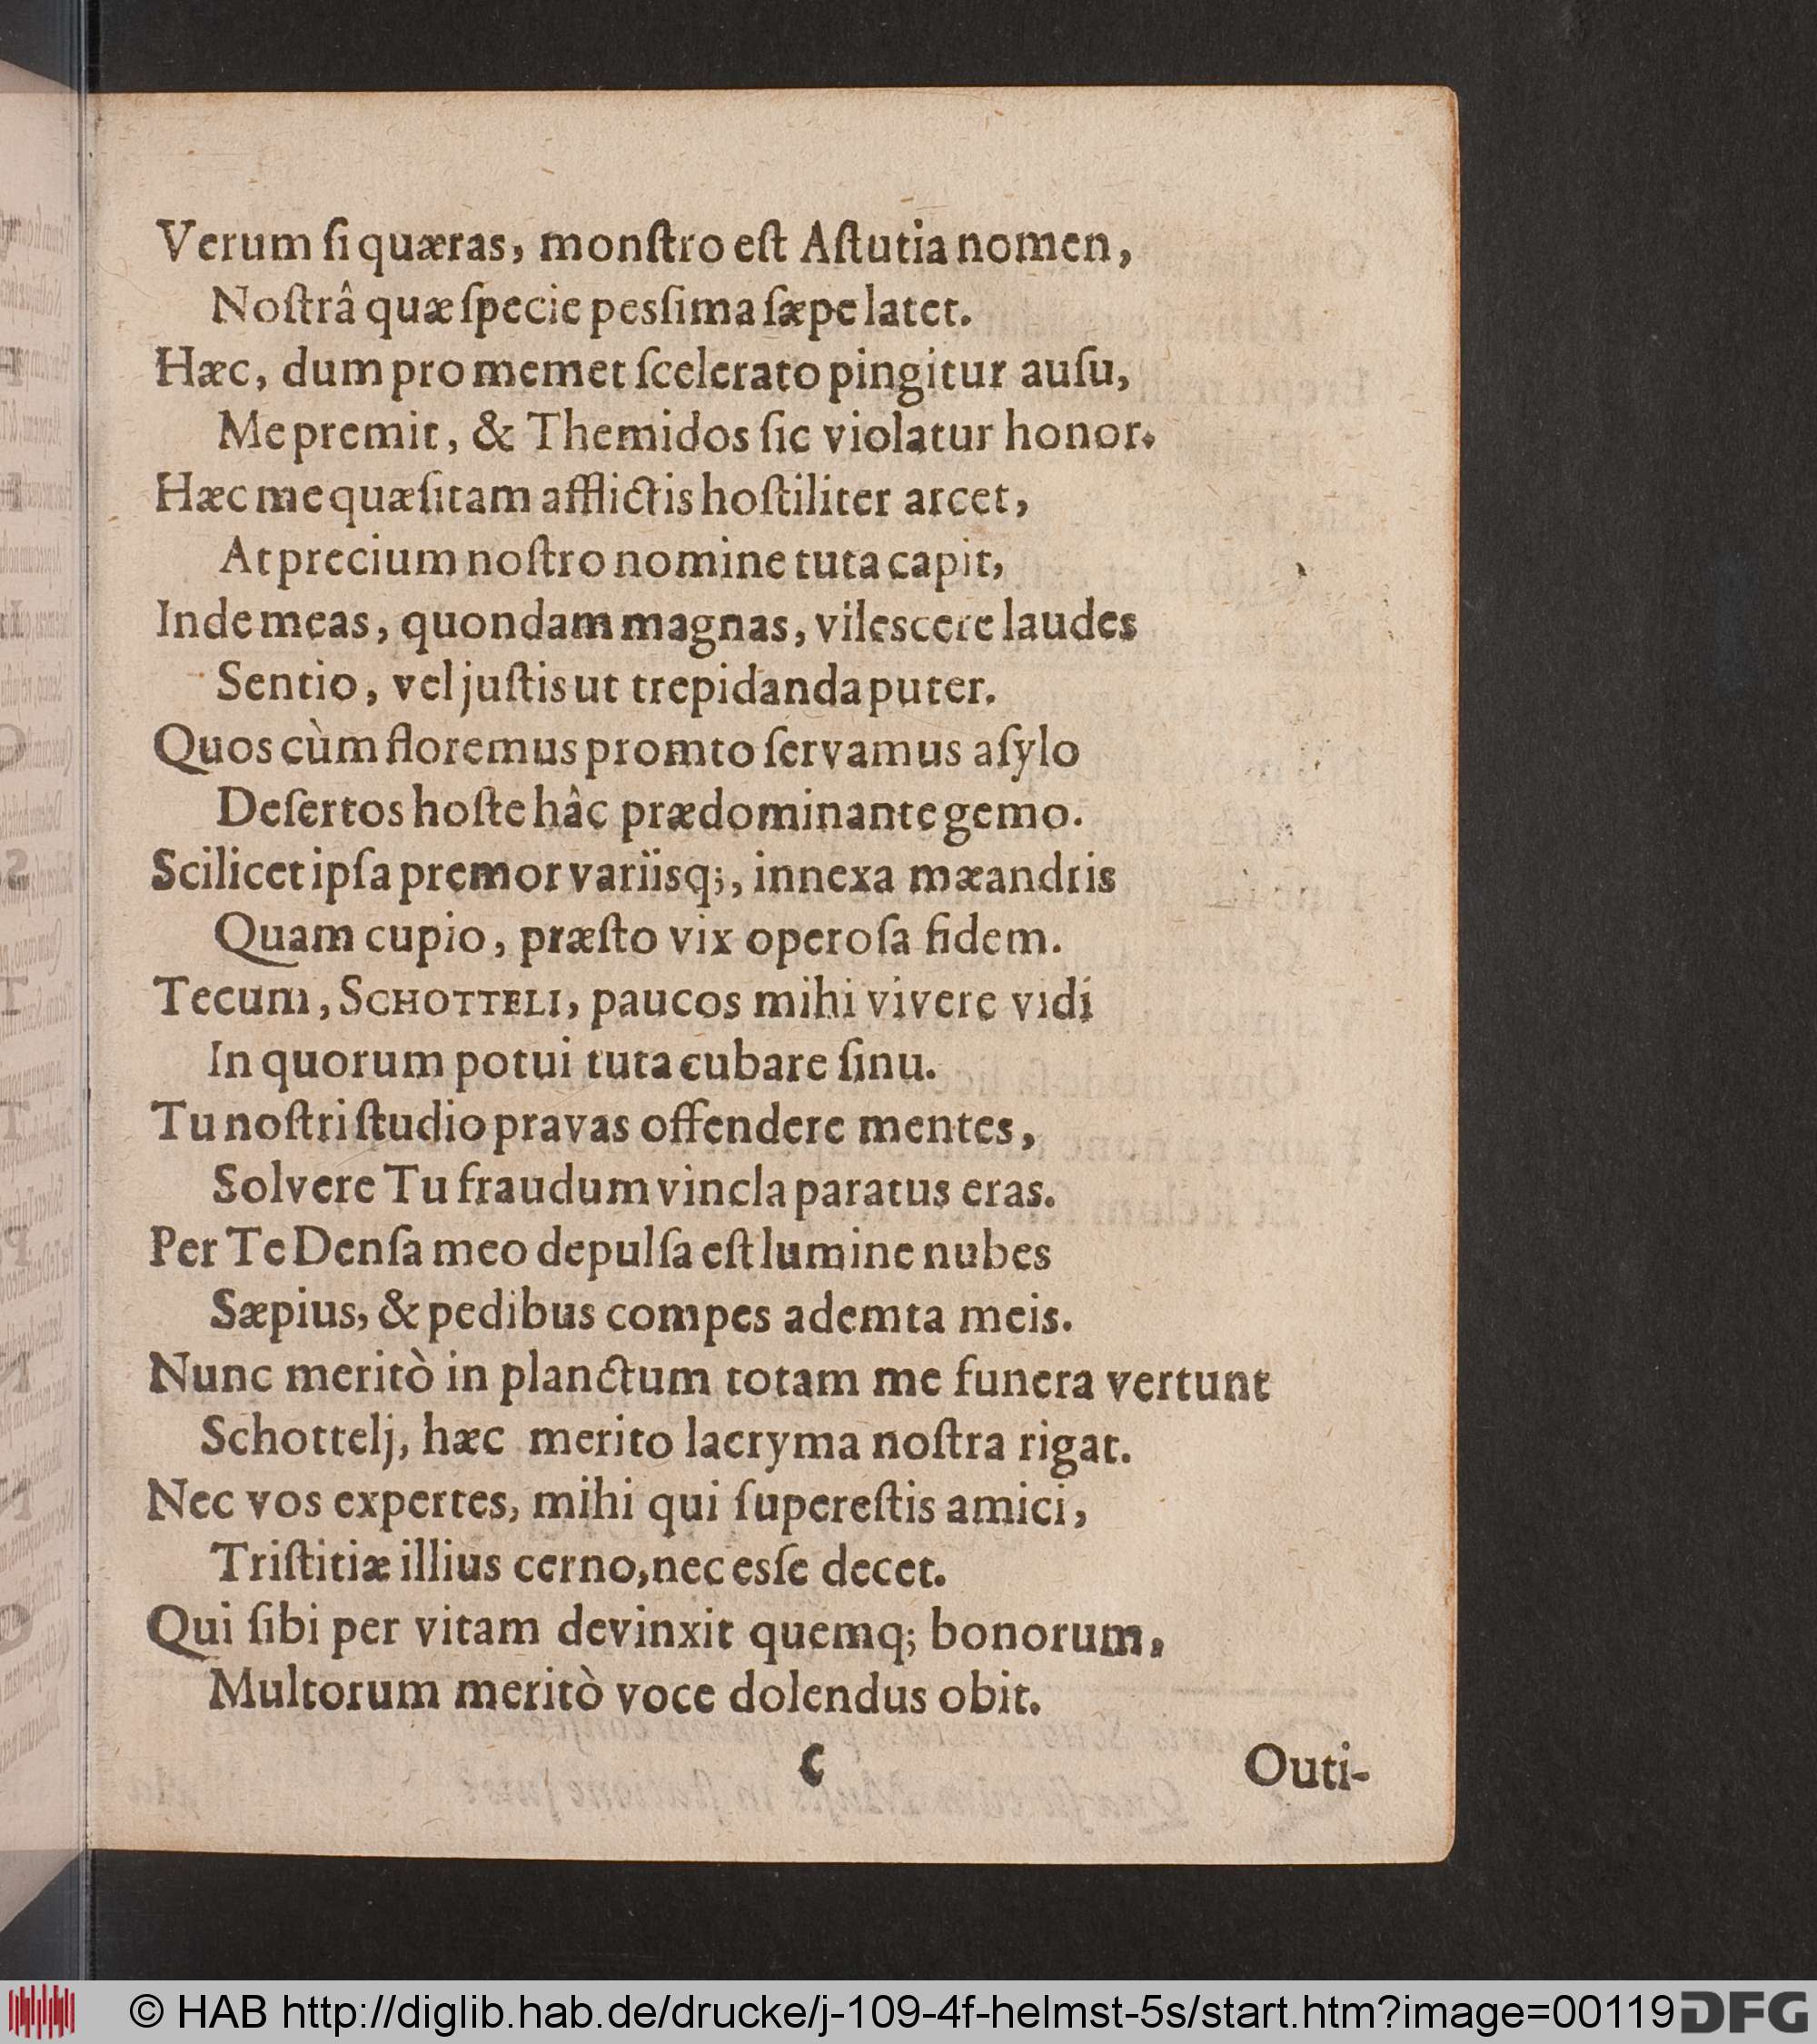 Verum ſi quæras, monſtro eſt Aſtutia nomen,
Noſtrâ quæ ſpecie pesſima ſæpe latet.
Hæc, dum pro memet ſcelerato pingitur auſu,
Me premit, & Themidos ſic violatur honor.
Hæc me quæſitam afflictis hoſtiliter arcet,
At precium noſtro nomine tuta capit,
Inde meas, quondam magnas, vilescere laudes
Sentio, vel juſtis ut trepidanda puter.
Quos cùm floremus promto ſervamus aſylo
Deſertos hoſte hâc prædominante gemo.
Scilicet ipſa premor variïsq;, innexa mæandris
Quam cupio, præſto vix operoſa fidem.
Tecum, SCHOTTELI, paucos mihi vivere vidi
In quorum potui tuta cubare ſinu.
Tu noſtri ſtudio pravas offendere mentes,
Solvere Tu fraudum vincla paratus eras.
Per Te Denſa meo depulſa eſt lumine nubes
Sæpius, & pedibus compes ademta meis.
Nunc meritò in planctum totam me funera vertunt
Schottelj, hæc merito lacryma noſtra rigat.
Nec vos expertes, mihi qui ſupereſtis amici,
Triſtitiæ illius cerno, nec esſe decet.
Qui ſibi per vitam devinxit quemq; bonorum,
Multorum meritò voce dolendus obit.
C Outi-
© HAB http://diglib.hab.de/drucke/j-109-4f-helmst-5s/start.htm?image=00119 DFG